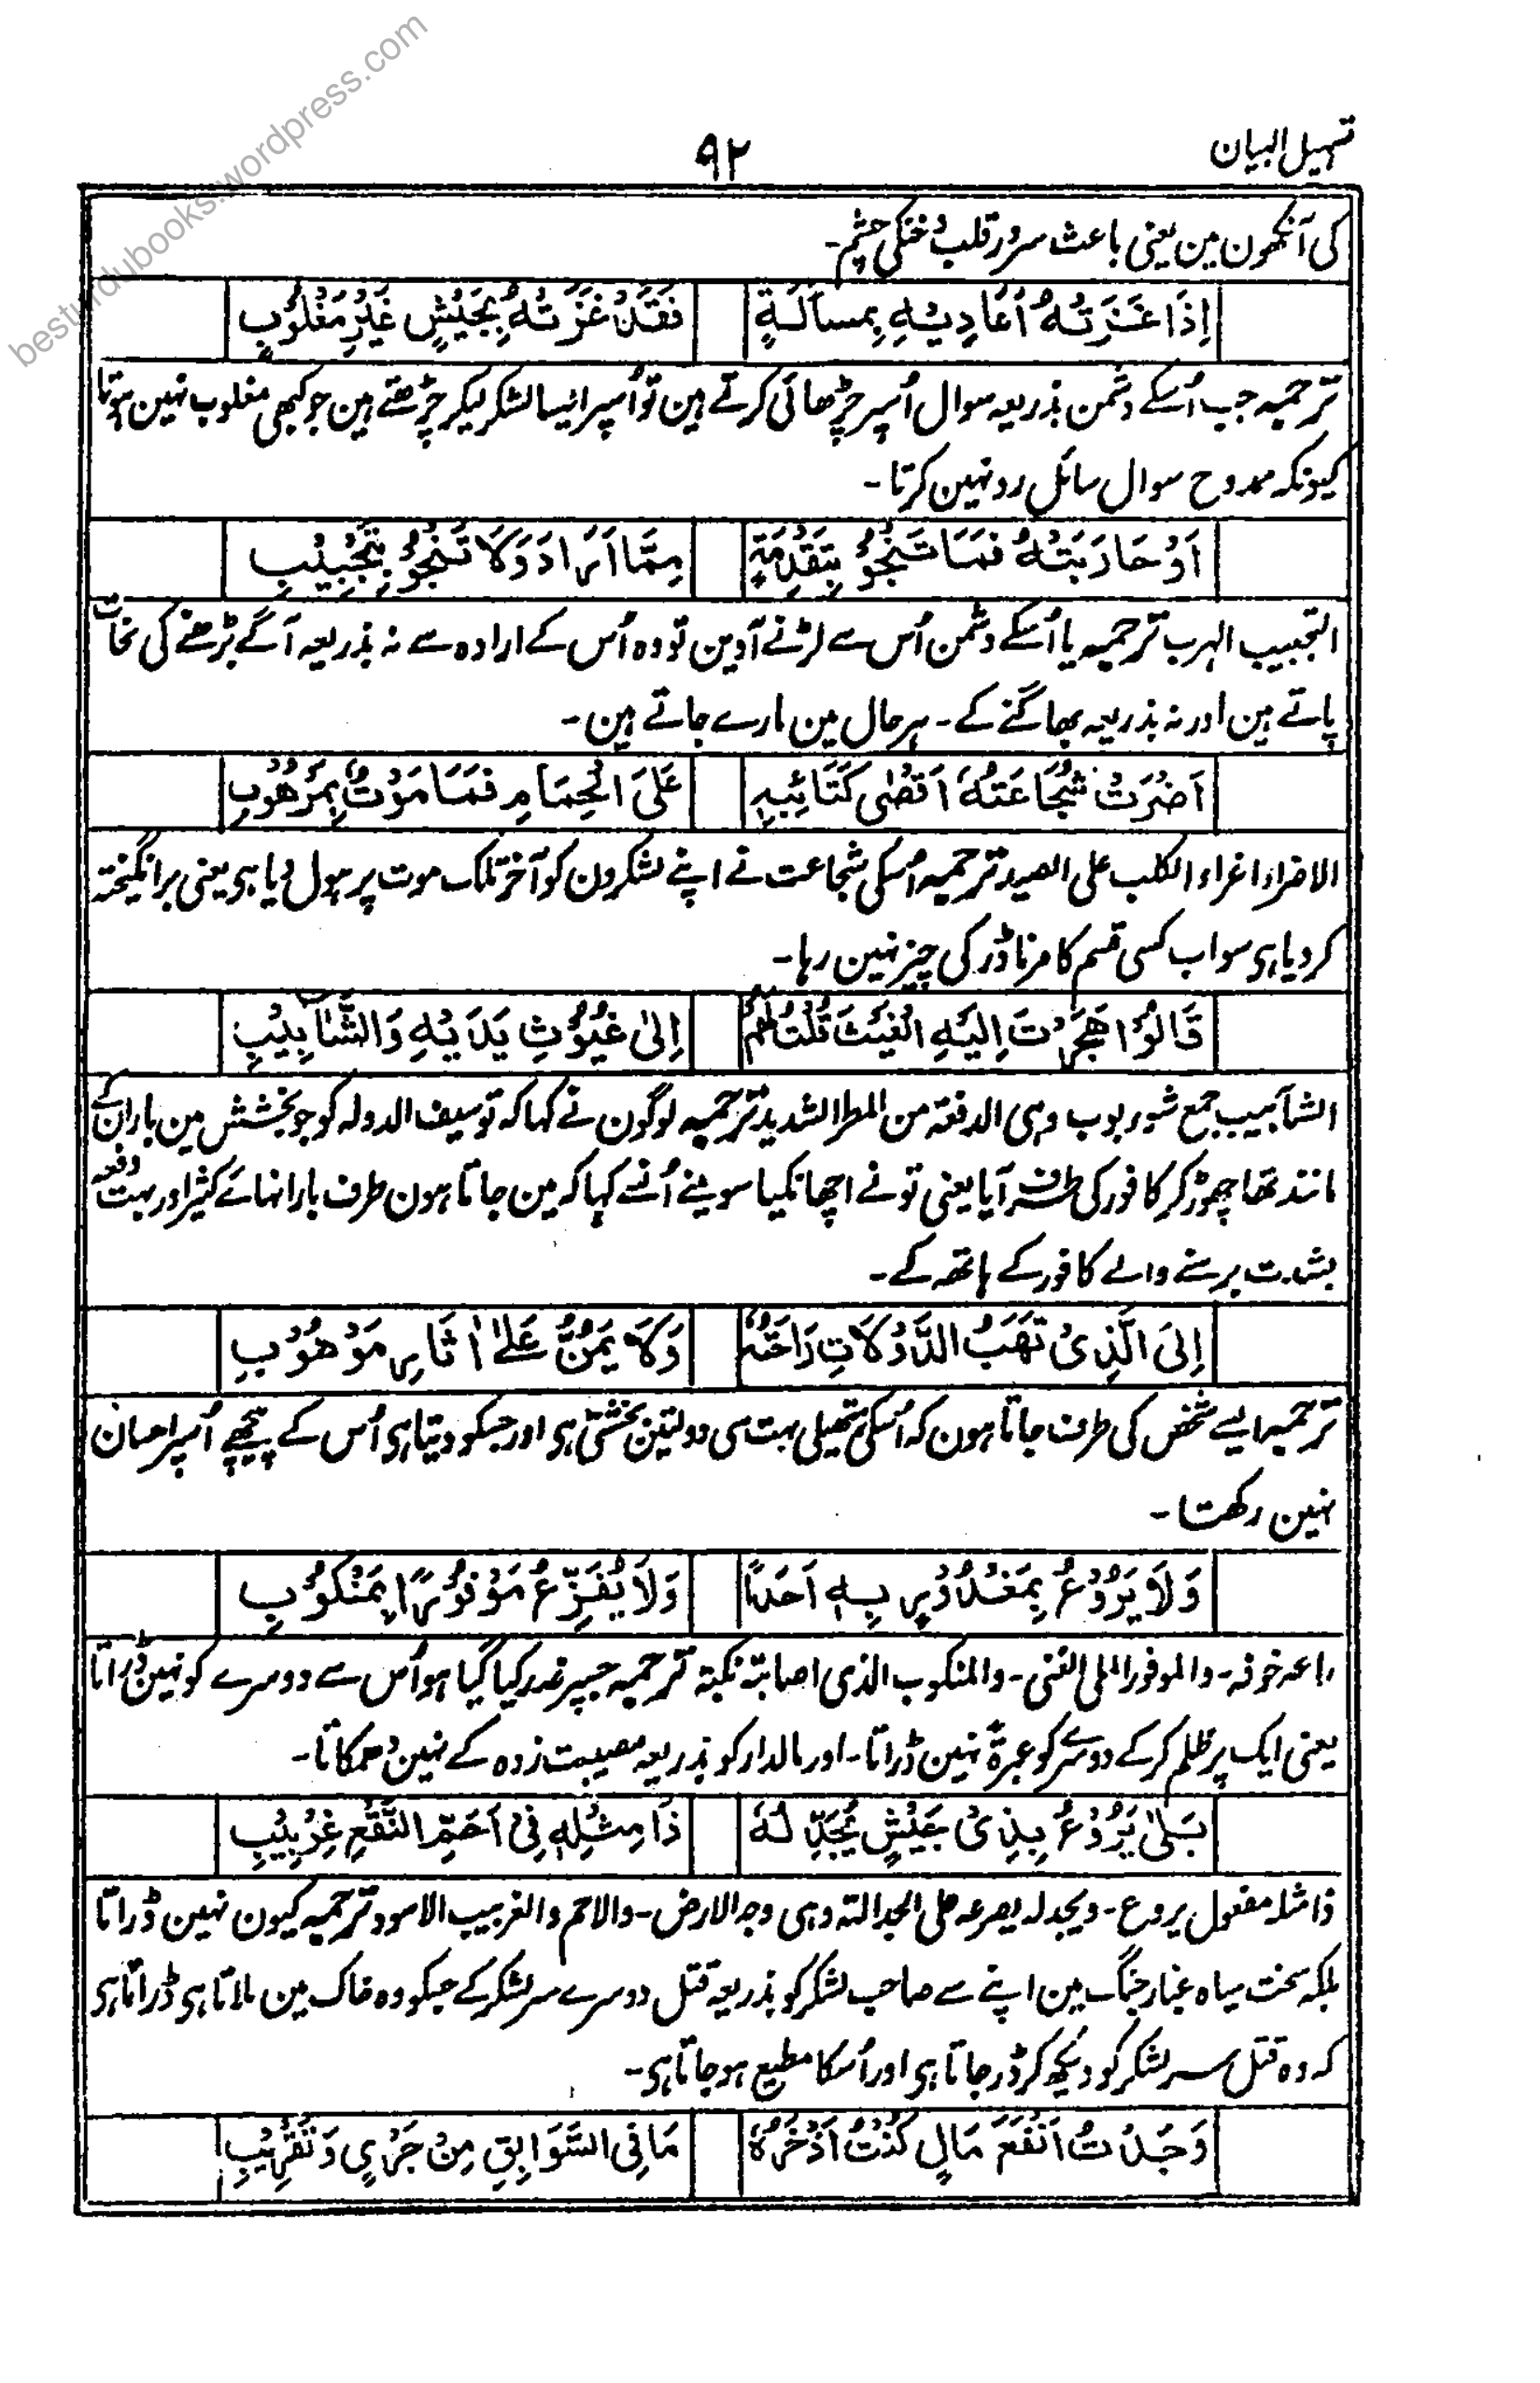 تسہیل البیان
۹۲
کی آنکھون مین یعنی باعث سرور قلب و خنکی چشم۔
اِذَا غَزَتْهُ اَعَادِيْهِ بِمَسْأَلَةٍ فَقَدْ غَزَتْهُ بِجَيْشٍ غَيْرِ مَغْلُوْبٍ
ترجمیہ جب اُسکے دشمن بذریعہ سوال اُسپر چڑھائی کرتے ہین تو اُسپر ایسا لشکر لیکر چڑھتے ہین جو کبھی مغلوب نہین ہوتا
کیونکہ ممدوح سوال سائل رد نہین کرتا۔
اَوْ حَارَبَتْهُ فَمَا تَنْجُوْ بِتَقْدِمَةٍ مِمَّا اَرَادَ وَلَا تَنْجُوْ بِتَجْبِيْبِ
التجبیب الہرب ترجمیہ یا اُسکے دشمن اُس سے لڑنے آوین تو وہ اُس کے ارادہ سے نہ بذریعہ آگے بڑھنے کی نجات
پاتے ہین اور نہ بذریعہ بھاگنے کے۔ ہر حال مین مارے جاتے ہین۔
اَضْرَتْ شُجَاعَتُهٗ اَقْصٰى كَتَائِبِهٖ عَلَى الْحِمَامِ فَمَا مَوْتٌ بِمَرْهُوْبِ
الاضراء اغراء الکلب علی الصید ترجمیہ اُسکی شجاعت نے اپنے لشکرون کو آخر تلک موت پر ہول دیا ہی یعنی برانگیختہ
کر دیا ہی سو اب کسی قسم کا مرنا ڈر کی چیز نہین رہا۔
قَالُوْا هَجَرْتَ اِلَيْهِ الْغَيْثَ قُلْتُ لَهُمْ اِلٰى غُيُوْثِ يَدَيْهِ وَالشَّآبِيْبِ
الشآبیب جمع شوربوب وہی الدفعۃ من المطر الشدید ترجمیہ لوگون نے کہا کہ تو سیف الدولہ کو جو بخشش مین باران کے
مانند تھا چھوڑ کر کافور کی طرف آیا یعنی تو نے اچھا نکیا سو مینے اُنسے کہا کہ مین جاتا ہون طرف بارانہائے کثیر اور بہت دفعہ
بشدت برسنے والے کافور کے ہاتھہ کے۔
اِلَى الَّذِىْ تَهَبُ الدَّوْلَاتِ رَاحَتُهٗ وَلَا يَمُنُّ عَلٰى اٰثَارِ مَوْهُوْبِ
ترجمیہ ایسے شخص کی طرف جاتا ہون کہ اُسکی ہتھیلی بہت سی دولتین بخشتی ہی اور جسکو دیتا ہی اُس کے پیچھے اُسپر احسان
نہین رکھتا۔
وَلَا يَرُوْعُ بِمَغْدُوْرٍ بِهٖ اَحَدًا وَلَا يُفَزِّعُ مَوْفُوْرًا بِمَنْكُوْبِ
راعہ خوفہ۔ والموفور الملی الغنی۔ والمنکوب الذی اصابتہ نکبتہ ترجمیہ جسپر غدر کیا گیا ہو اُس سے دوسرے کو نہین ڈراتا
یعنی ایک پر ظلم کر کے دوسرے کو عبرۃً نہین ڈراتا۔ اور مالدار کو بذریعہ مصیبت زدہ کے نہین دھمکاتا۔
بَلٰى يَرُوْعُ بِذِىْ جَيْشٍ يُجَدِّلُهٗ ذَا مِثْلِهٖ فِىْ اَحَمِّ النَّقْعِ غِرْبِيْبِ
ذا مثلہ مفعول یروع۔ ویجدلہ یصرعہ علی الجدالتہ وہی وجہ الارض۔ والاحم والغربیب الاسود ترجمیہ کیون نہین ڈراتا
بلکہ سخت سیاہ غبار جنگ مین اپنے سے صاحب لشکر کو بذریعہ قتل دوسرے سر لشکر کے جسکو وہ خاک مین ملاتا ہی ڈراتا ہی
کہ وہ قتل سر لشکر کو دیکھ کر ڈر جاتا ہی اور اُسکا مطیع ہو جاتا ہی۔
وَجَدْتُ اَنْفَعَ مَالٍ كُنْتُ اَذْخَرُهٗ مَا فِى السَّوَابِقِ مِنْ جَرْىٍ وَتَقْرِيْبِ
besturdubooks.wordpress.com